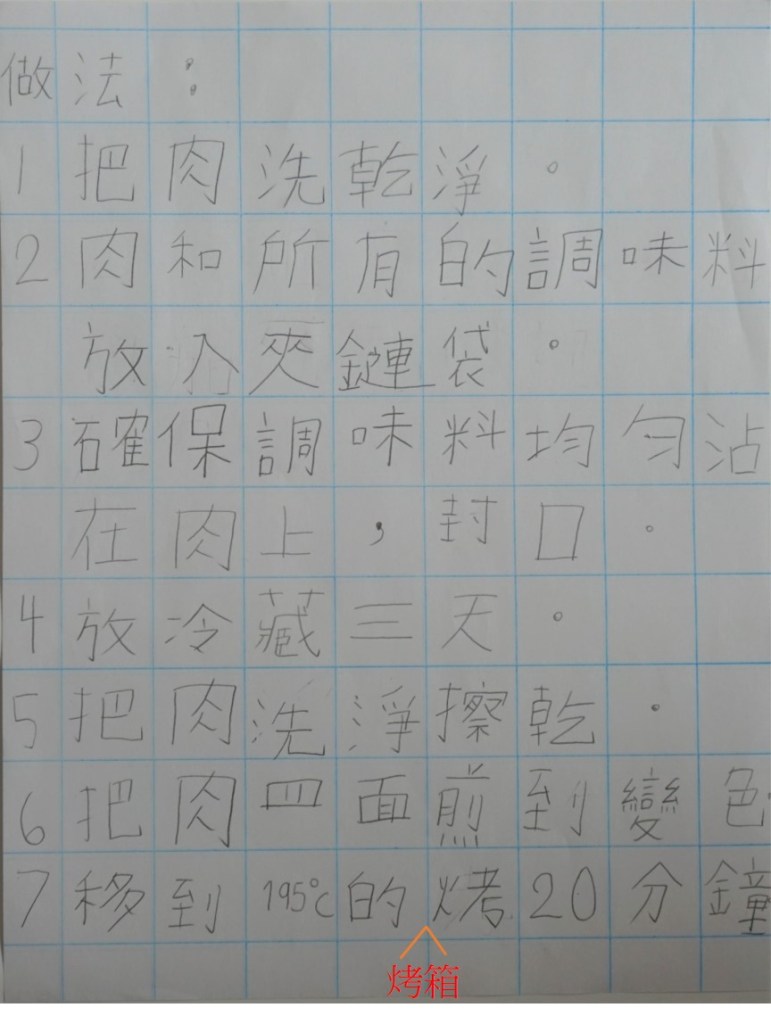 做法：
1把肉洗乾淨。
2肉和所有的調味料
放入夾鏈袋。
3確保調味料均勻沾
在肉上，封口。
4放冷藏三天。
5把肉洗淨擦乾.
6把肉四面煎到變色
7移到195℃的烤20分鐘
烤箱